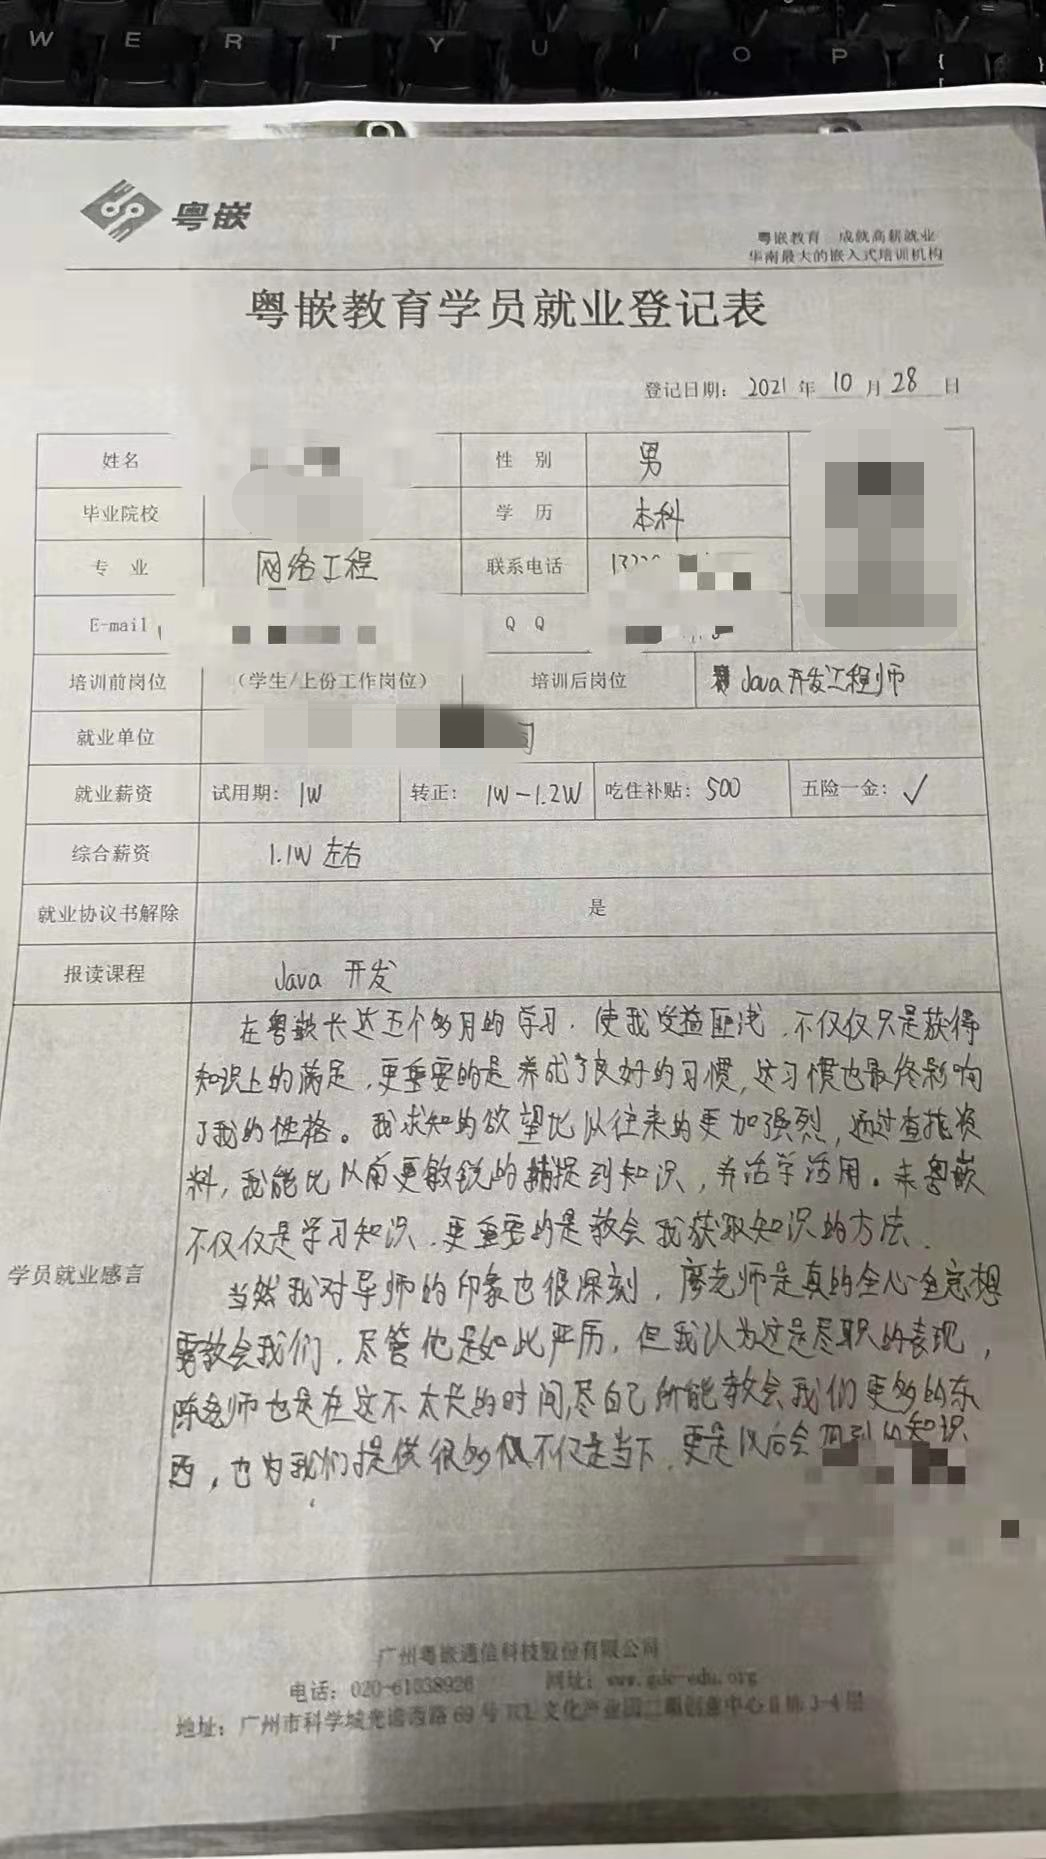 W E R T Y U I O P {
粤嵌
粤嵌教育 成就高薪就业
华南最大的嵌入式培训机构
粤嵌教育学员就业登记表
登记日期： 2021 年 10 月 28 日
姓名 性 别 男
毕业院校 学 历 本科
专 业 网络工程 联系电话
E-mail Q Q
培训前岗位 （学生/上份工作岗位） 培训后岗位 Java开发工程师
就业单位
就业薪资 试用期： 1W 转正： 1W-1.2W 吃住补贴： 500 五险一金： ✓
综合薪资 1.1W 左右
就业协议书解除 是
报读课程 Java 开发
在粤嵌长达五个多月的学习，使我受益匪浅，不仅仅只是获得
知识上的满足，更重要的是养成了良好的习惯，这习惯也最终影响
了我的性格。我求知的欲望比以往来的更加强烈，通过查找资
料，我能比以前更敏锐的捕捉到知识，并活学活用。来粤嵌
不仅仅是学习知识，更重要的是教会我获取知识的方法。
学员就业感言
当然我对导师的印象也很深刻，廖老师是真的全心全意想
要教会我们，尽管他是如此严厉，但我认为这是尽职的表现，
陈老师也是在这不太长的时间，尽自己所能教会我们更多的东
西，也为我们提供很多不仅是当下，更是以后会用到的知识
广州粤嵌通信科技股份有限公司
电话：020-61038926 网址：www.gdc-edu.org
地址：广州市科学城光谱西路69号TCL文化产业园二期创意中心 3-4层